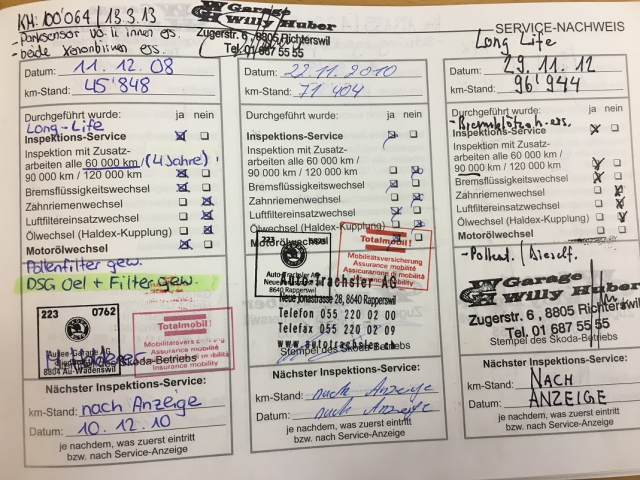 KM: 100'064 / 13.3.13
- Parksensor vo. li innen ers.
- beide Xenonbirnen ers.
Garage
Willy Huber
Zugerstr. 6, 8805 Richterswil
Tel. 01 687 55 55
SERVICE-NACHWEIS
Long Life
Datum: 11.12.08
km-Stand: 45'848
Durchgeführt wurde: ja nein
Long-Life
Inspektions-Service
Inspektion mit Zusatz-
arbeiten alle 60 000 km / (4 Jahre)
90 000 km / 120 000 km
Bremsflüssigkeitswechsel
Zahnriemenwechsel
Luftfiltereinsatzwechsel
Ölwechsel (Haldex-Kupplung)
Motorölwechsel
Pollenfilter gew.
DSG Oel + Filter gew.
223 0762
8804 Au-Wädenswil
Totalmobil!
Mobilitätsversicherung
Assurance mobilité
Assicurazione di mobilità
Insurance mobility
Skoda-Betriebs
Nächster Inspektions-Service:
km-Stand: nach Anzeige
Datum: 10.12.10
je nachdem, was zuerst eintritt
bzw. nach Service-Anzeige
Datum: 22.11.2010
km-Stand: 71 404
Durchgeführt wurde: ja nein
Inspektions-Service
Inspektion mit Zusatz-
arbeiten alle 60 000 km /
90 000 km / 120 000 km
Bremsflüssigkeitswechsel
Zahnriemenwechsel
Luftfiltereinsatzwechsel
Ölwechsel (Haldex-Kupplung)
Motorölwechsel
223
Totalmobil!
Mobilitätsversicherung
Assurance mobilité
Assicurazione di mobilità
Insurance mobility
8640 Rapperswil
Auto Trachsler AG
Neue Jonastrasse 28, 8640 Rapperswil
Telefon 055 220 02 00
Telefax 055 220 02 09
www.autotrachsler.ch
Stempel des Skoda-Betriebs
Nächster Inspektions-Service:
km-Stand: nach Anzeige
Datum: nach Anzeige
je nachdem, was zuerst eintritt
bzw. nach Service-Anzeige
Datum: 29.11.12
km-Stand: 96'944
Durchgeführt wurde: ja nein
- Bremsklötze h. ers.
Inspektions-Service
Inspektion mit Zusatz-
arbeiten alle 60 000 km /
90 000 km / 120 000 km
Bremsflüssigkeitswechsel
Zahnriemenwechsel
Luftfiltereinsatzwechsel
Ölwechsel (Haldex-Kupplung)
Motorölwechsel
Garage
Willy Huber
Zugerstr. 6, 8805 Richterswil
Tel. 01 687 55 55
Stempel des Skoda-Betriebs
Nächster Inspektions-Service:
km-Stand: NACH
Datum: ANZEIGE
je nachdem, was zuerst eintritt
bzw. nach Service-Anzeige